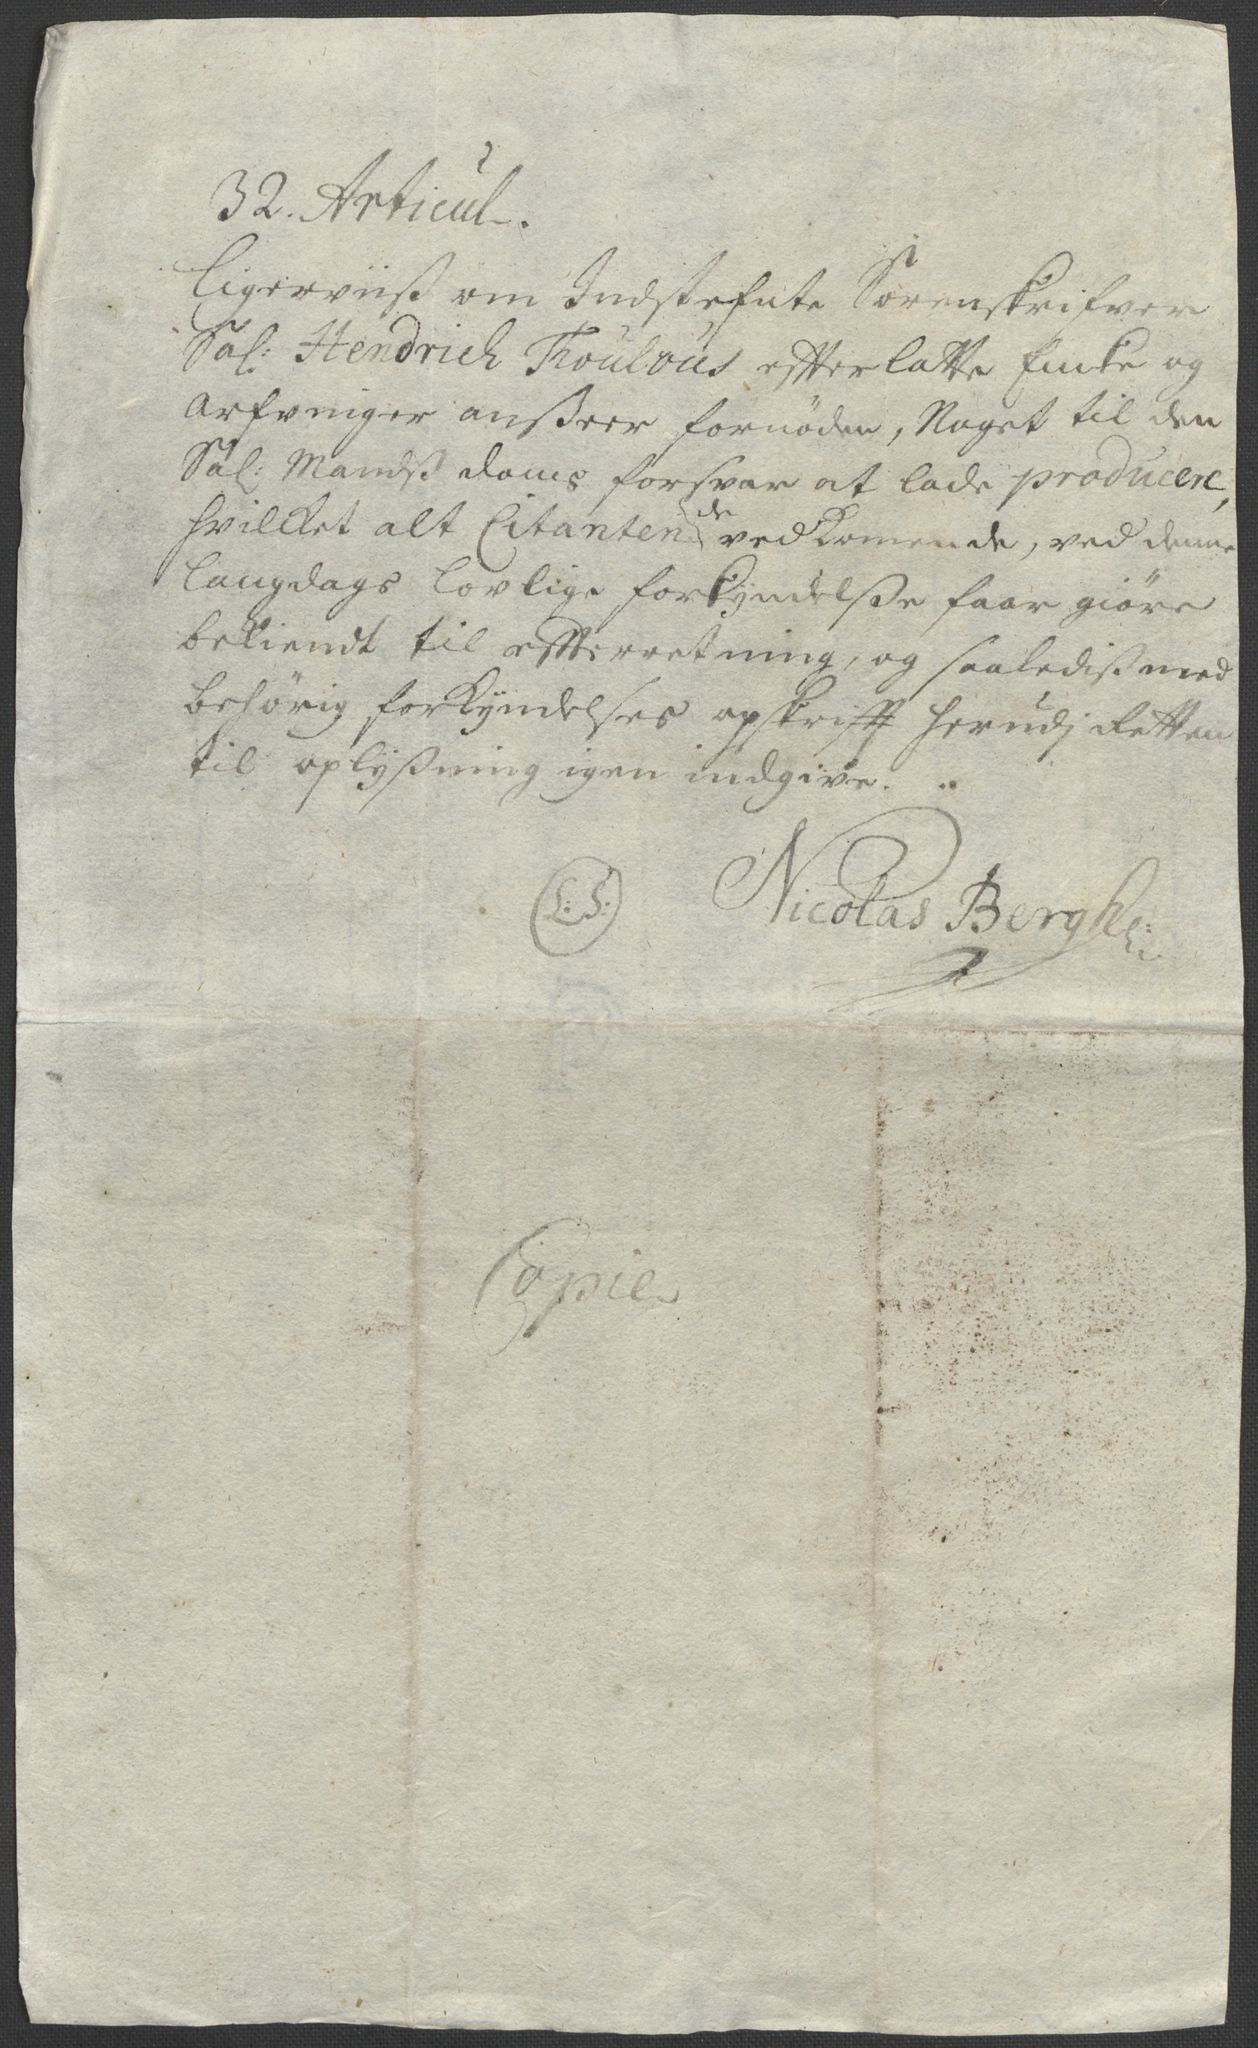 32. Articul.
Ligerviiss om Indstefnte Sorenskrifver
Sal: Hendrich efterlatte Encke og
Arfvinger ansseer fornøden, Noget til den
Sal: Mandss doms forsvar at lade producere,
hvilcket alt Citanten de vedkomende, ved denne
laugdags lovlige forkyndelsse faar giøre
bekiendt til efterretning, og saalediss med
behørig forkyndelses opskrifft herudj Retten
til oplyssning igen indgive.
L: S: Nicolas Bergh
Copie